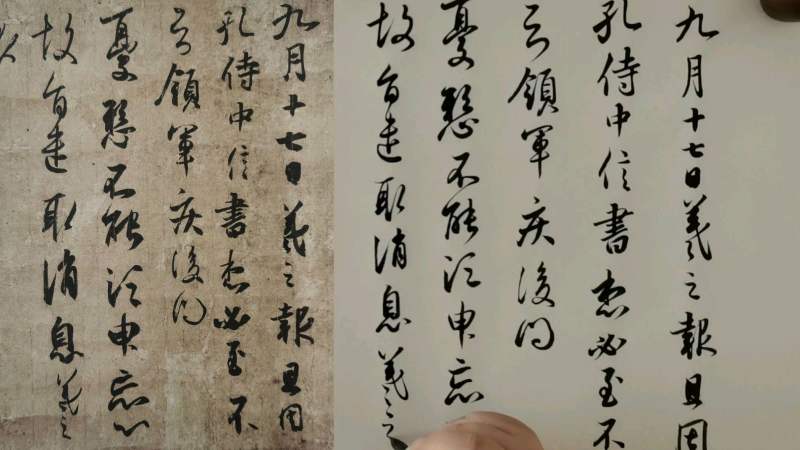 九月十七日羲之報且因
孔侍中信書想必至不
知領軍疾後問
憂懸不能須臾忘心
故旨遣取消息羲之
九月十七日羲之報且因
孔侍中信書想必至不
知領軍疾後問
憂懸不能須臾忘
故旨遣取消息羲之